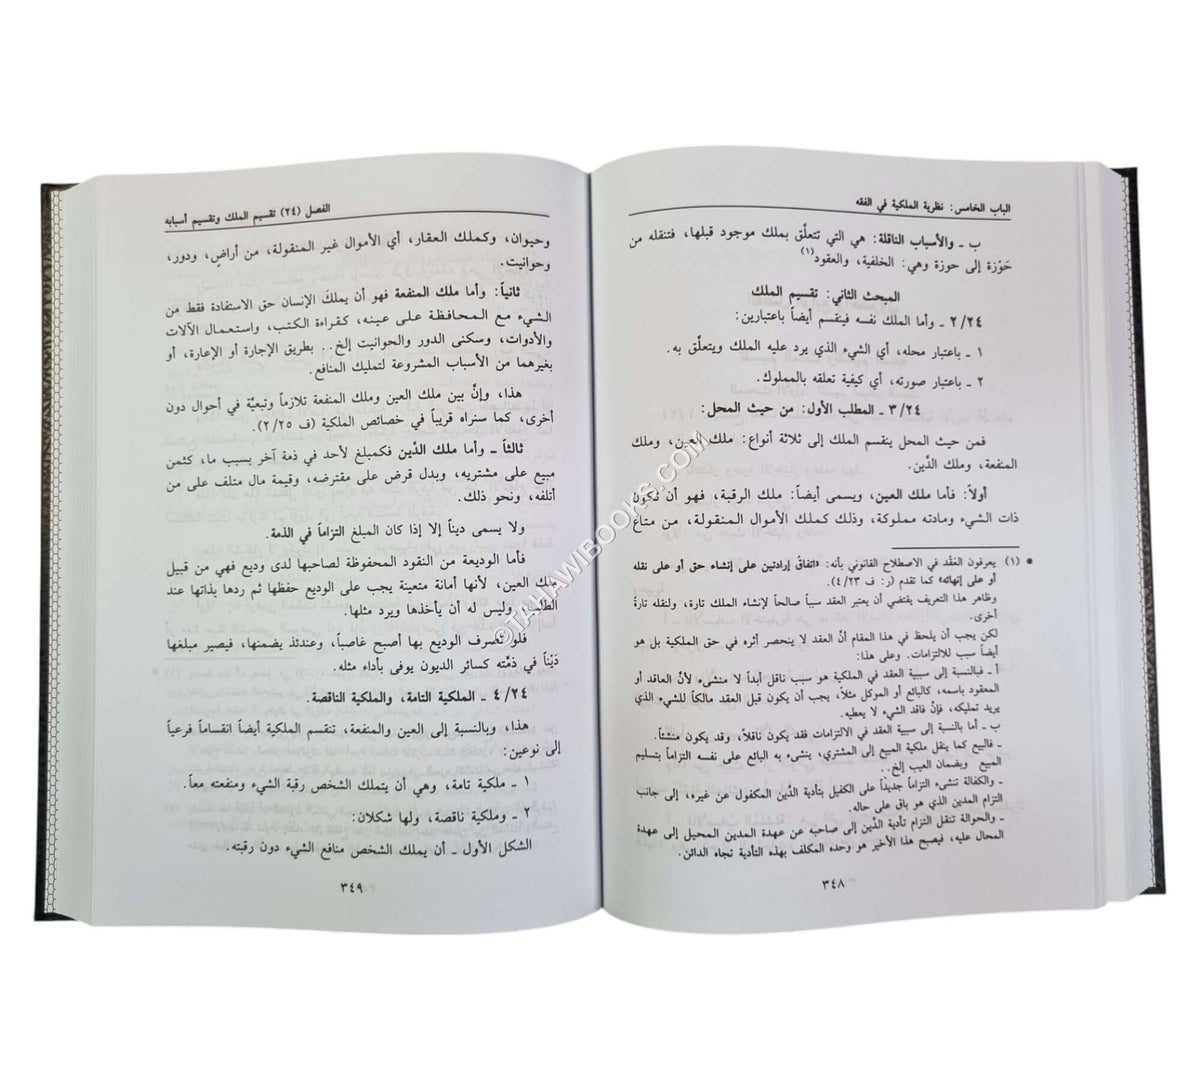 الباب الخامس: نظرية الملكية في الفقه
ب ـ والأسباب الناقلة: هي التي تتعلّق بملك موجود قبلها، فتنقله من
حَوْزة إلى حوزة وهي: الخلفية، والعقود(١)
المبحث الثاني: تقسيم الملك
٢/٢٤ ـ وأما الملك نفسه فينقسم أيضاً باعتبارين:
١ ـ باعتبار محله، أي الشيء الذي يرد عليه الملك ويتعلَّق به.
٢ ـ باعتبار صورته، أي كيفية تعلقه بالمملوك.
٣/٢٤ ـ المطلب الأول: من حيث المحل:
فمن حيث المحل ينقسم الملك إلى ثلاثة أنواع: ملك العين، وملك
المنفعة، وملك الدَّين.
أولاً: فأما ملك العين، ويسمى أيضاً: ملك الرقبة، فهو أن تكون
ذات الشيء ومادته مملوكة، وذلك كملك الأموال المنقولة، من متاع
(١) يعرفون العَقْد في الاصطلاح القانوني بأنه: «اتفاقُ إرادتين على إنشاء حق أو على نقله
أو على إنهائه» كما تقدم (ر: ف ٤/٢٣).
وظاهر هذا التعريف يقتضي أن يعتبر العقد سبباً صالحاً لإنشاء الملك تارة، ولنقله تارةً
أخرى.
لكن يجب أن يلحظ في هذا المقام أنَّ العقد لا ينحصر أثره في حق الملكية بل هو
أيضاً سبب للالتزامات. وعلى هذا:
أ ـ فبالنسبة إلى سببية العقد في الملكية هو سبب ناقل أبداً لا منشىء لأنَّ العاقد أو
المعقود باسمه، كالبائع أو الموكل مثلاً، يجب أن يكون قبل العقد مالكاً للشيء الذي
يريد تمليكه، فإنَّ فاقد الشيء لا يعطيه.
ب ـ أما بالنسبة إلى سببية العقد في الالتزامات فقد يكون ناقلاً، وقد يكون منشئاً.
ـ فالبيع كما ينقل ملكية المبيع إلى المشتري، ينشىء به البائع على نفسه التزاماً بتسليم
المبيع وبضمان العيب إلخ..
ـ والكفالة تنشىء التزاماً جديداً على الكفيل بتأدية الدَّين المكفول عن غيره، إلى جانب
التزام المدين الذي هو باق على حاله.
ـ والحوالة تنقل التزام تأدية الدَّين إلى صاحبه عن عهدة المدين المحيل إلى عهدة
المحال عليه، فيصبح هذا الأخير هو وحده المكلف بهذه التأدية تجاه الدائن.
٣٤٨
الفصل (٢٤) تقسيم الملك وتقسيم أسبابه
وحيوان، وكملك العقار، أي الأموال غير المنقولة، من أراضٍ، ودور،
وحوانيت.
ثانياً: وأما ملك المنفعة فهو أن يملكَ الإنسان حق الاستفادة فقط من
الشيء مع المحافظة على عينه، كقراءة الكتب، واستعمال الآلات
والأدوات، وسكنى الدور والحوانيت إلخ.. بطريق الإجارة أو الإعارة، أو
بغيرهما من الأسباب المشروعة لتمليك المنافع.
هذا، وإنَّ بين ملك العين وملك المنفعة تلازماً وتبعيَّة في أحوال دون
أخرى، كما سنراه قريباً في خصائص الملكية (ف ٢/٢٥).
ثالثاً ـ وأما ملك الدَّين فكمبلغ لأحد في ذمة آخر بسبب ما، كثمن
مبيع على مشتريه، وبدل قرض على مقترضه، وقيمة مال متلف على من
أتلفه، ونحو ذلك.
ولا يسمى ديناً إلا إذا كان المبلغ التزاماً في الذمة.
فأما الوديعة من النقود المحفوظة لصاحبها لدى وديع فهي من قبيل
ملك العين، لأنها أمانة متعينة يجب على الوديع حفظها ثم ردها بذاتها عند
الطلب، وليس له أن يأخذها ويرد مثلها.
فلو تصرف الوديع بها أصبح غاصباً، وعندئذ يضمنها، فيصير مبلغها
دَيْناً في ذمَّته كسائر الديون يوفى بأداء مثله.
٤/٢٤ ـ الملكية التامة، والملكية الناقصة.
هذا، وبالنسبة إلى العين والمنفعة، تنقسم الملكية أيضاً انقساماً فرعياً
إلى نوعين:
١ ـ ملكية تامة، وهي أن يتملك الشخص رقبة الشيء ومنفعته معاً.
٢ ـ وملكية ناقصة، ولها شكلان:
الشكل الأول ـ أن يملك الشخص منافع الشيء دون رقبته.
٣٤٩
©TAHAWIBOOKS.COM